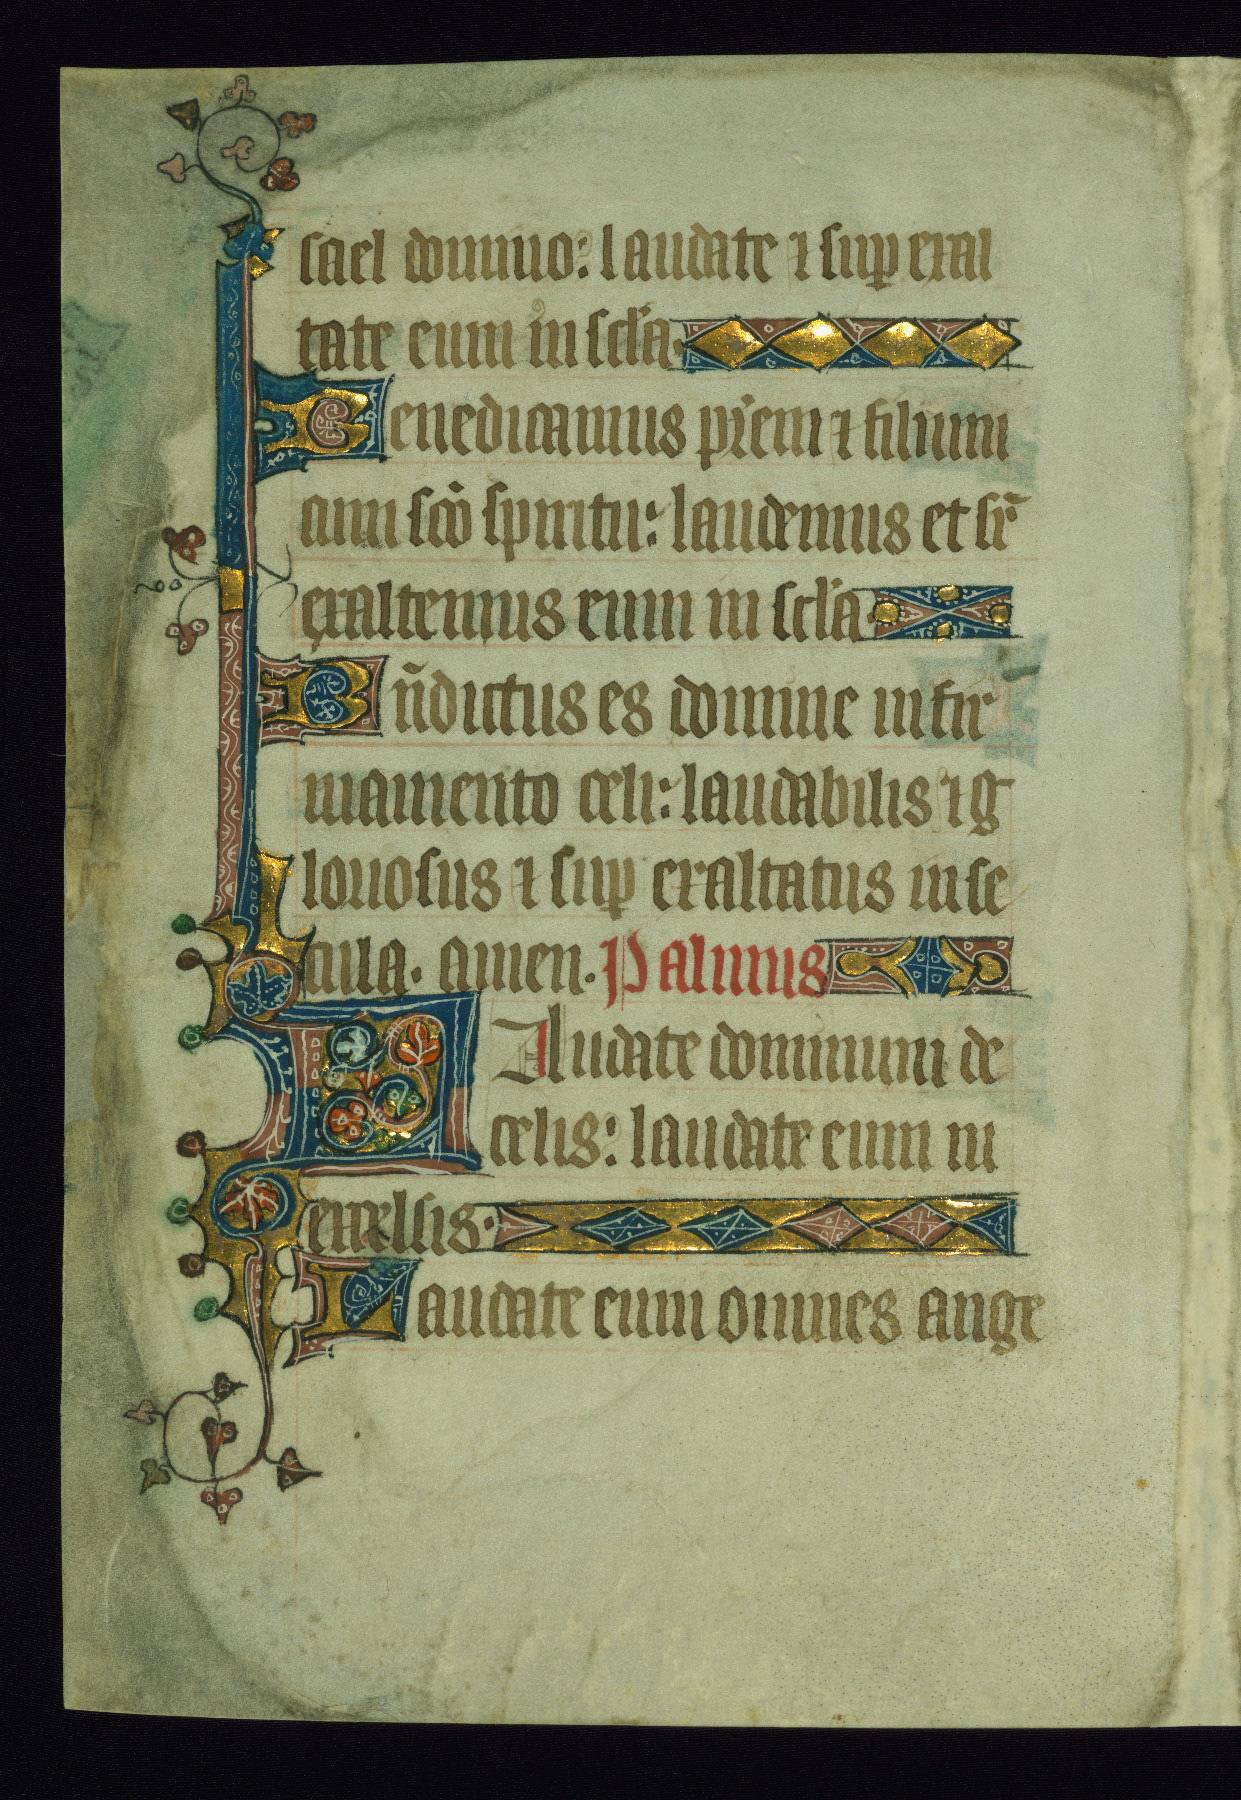 srael domino: laudate ⁊ sup exal
tate eum in scl'a.
Benedicamus pr̄em ⁊ filium
cum scō spiritu: laudemus et sr̄
exaltemus eum in scl'a.
Bn̄dictus es domine in fir
mamento celi: laudabilis ⁊ g
loriosus ⁊ sup exaltatus in se
cula. amen. Psalmus
Laudate dominum de
celis: laudate eum in
excelsis.
Laudate eum omnes ange